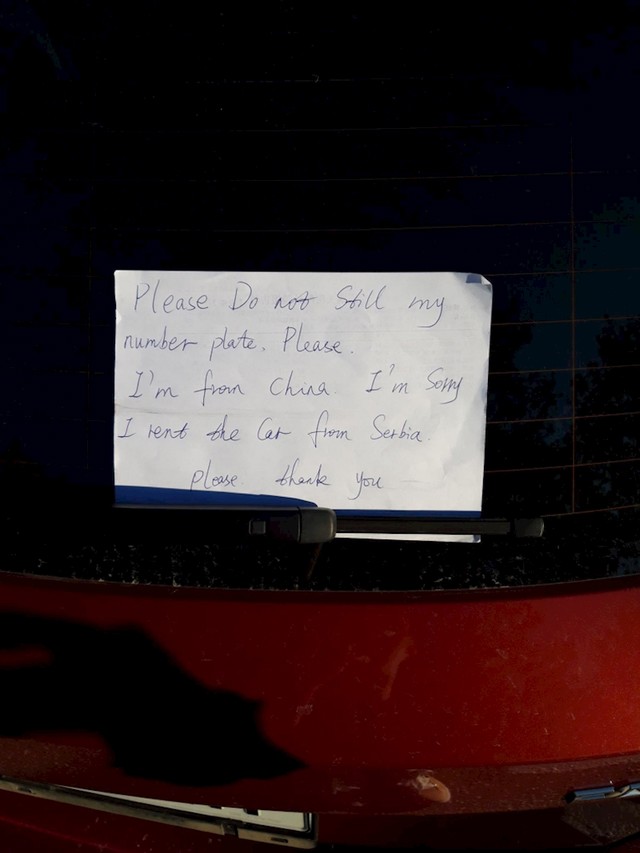 Please Do not Still my
number plate. Please.
I'm from China. I'm Sorry
I rent the Car from Serbia.
please thank you